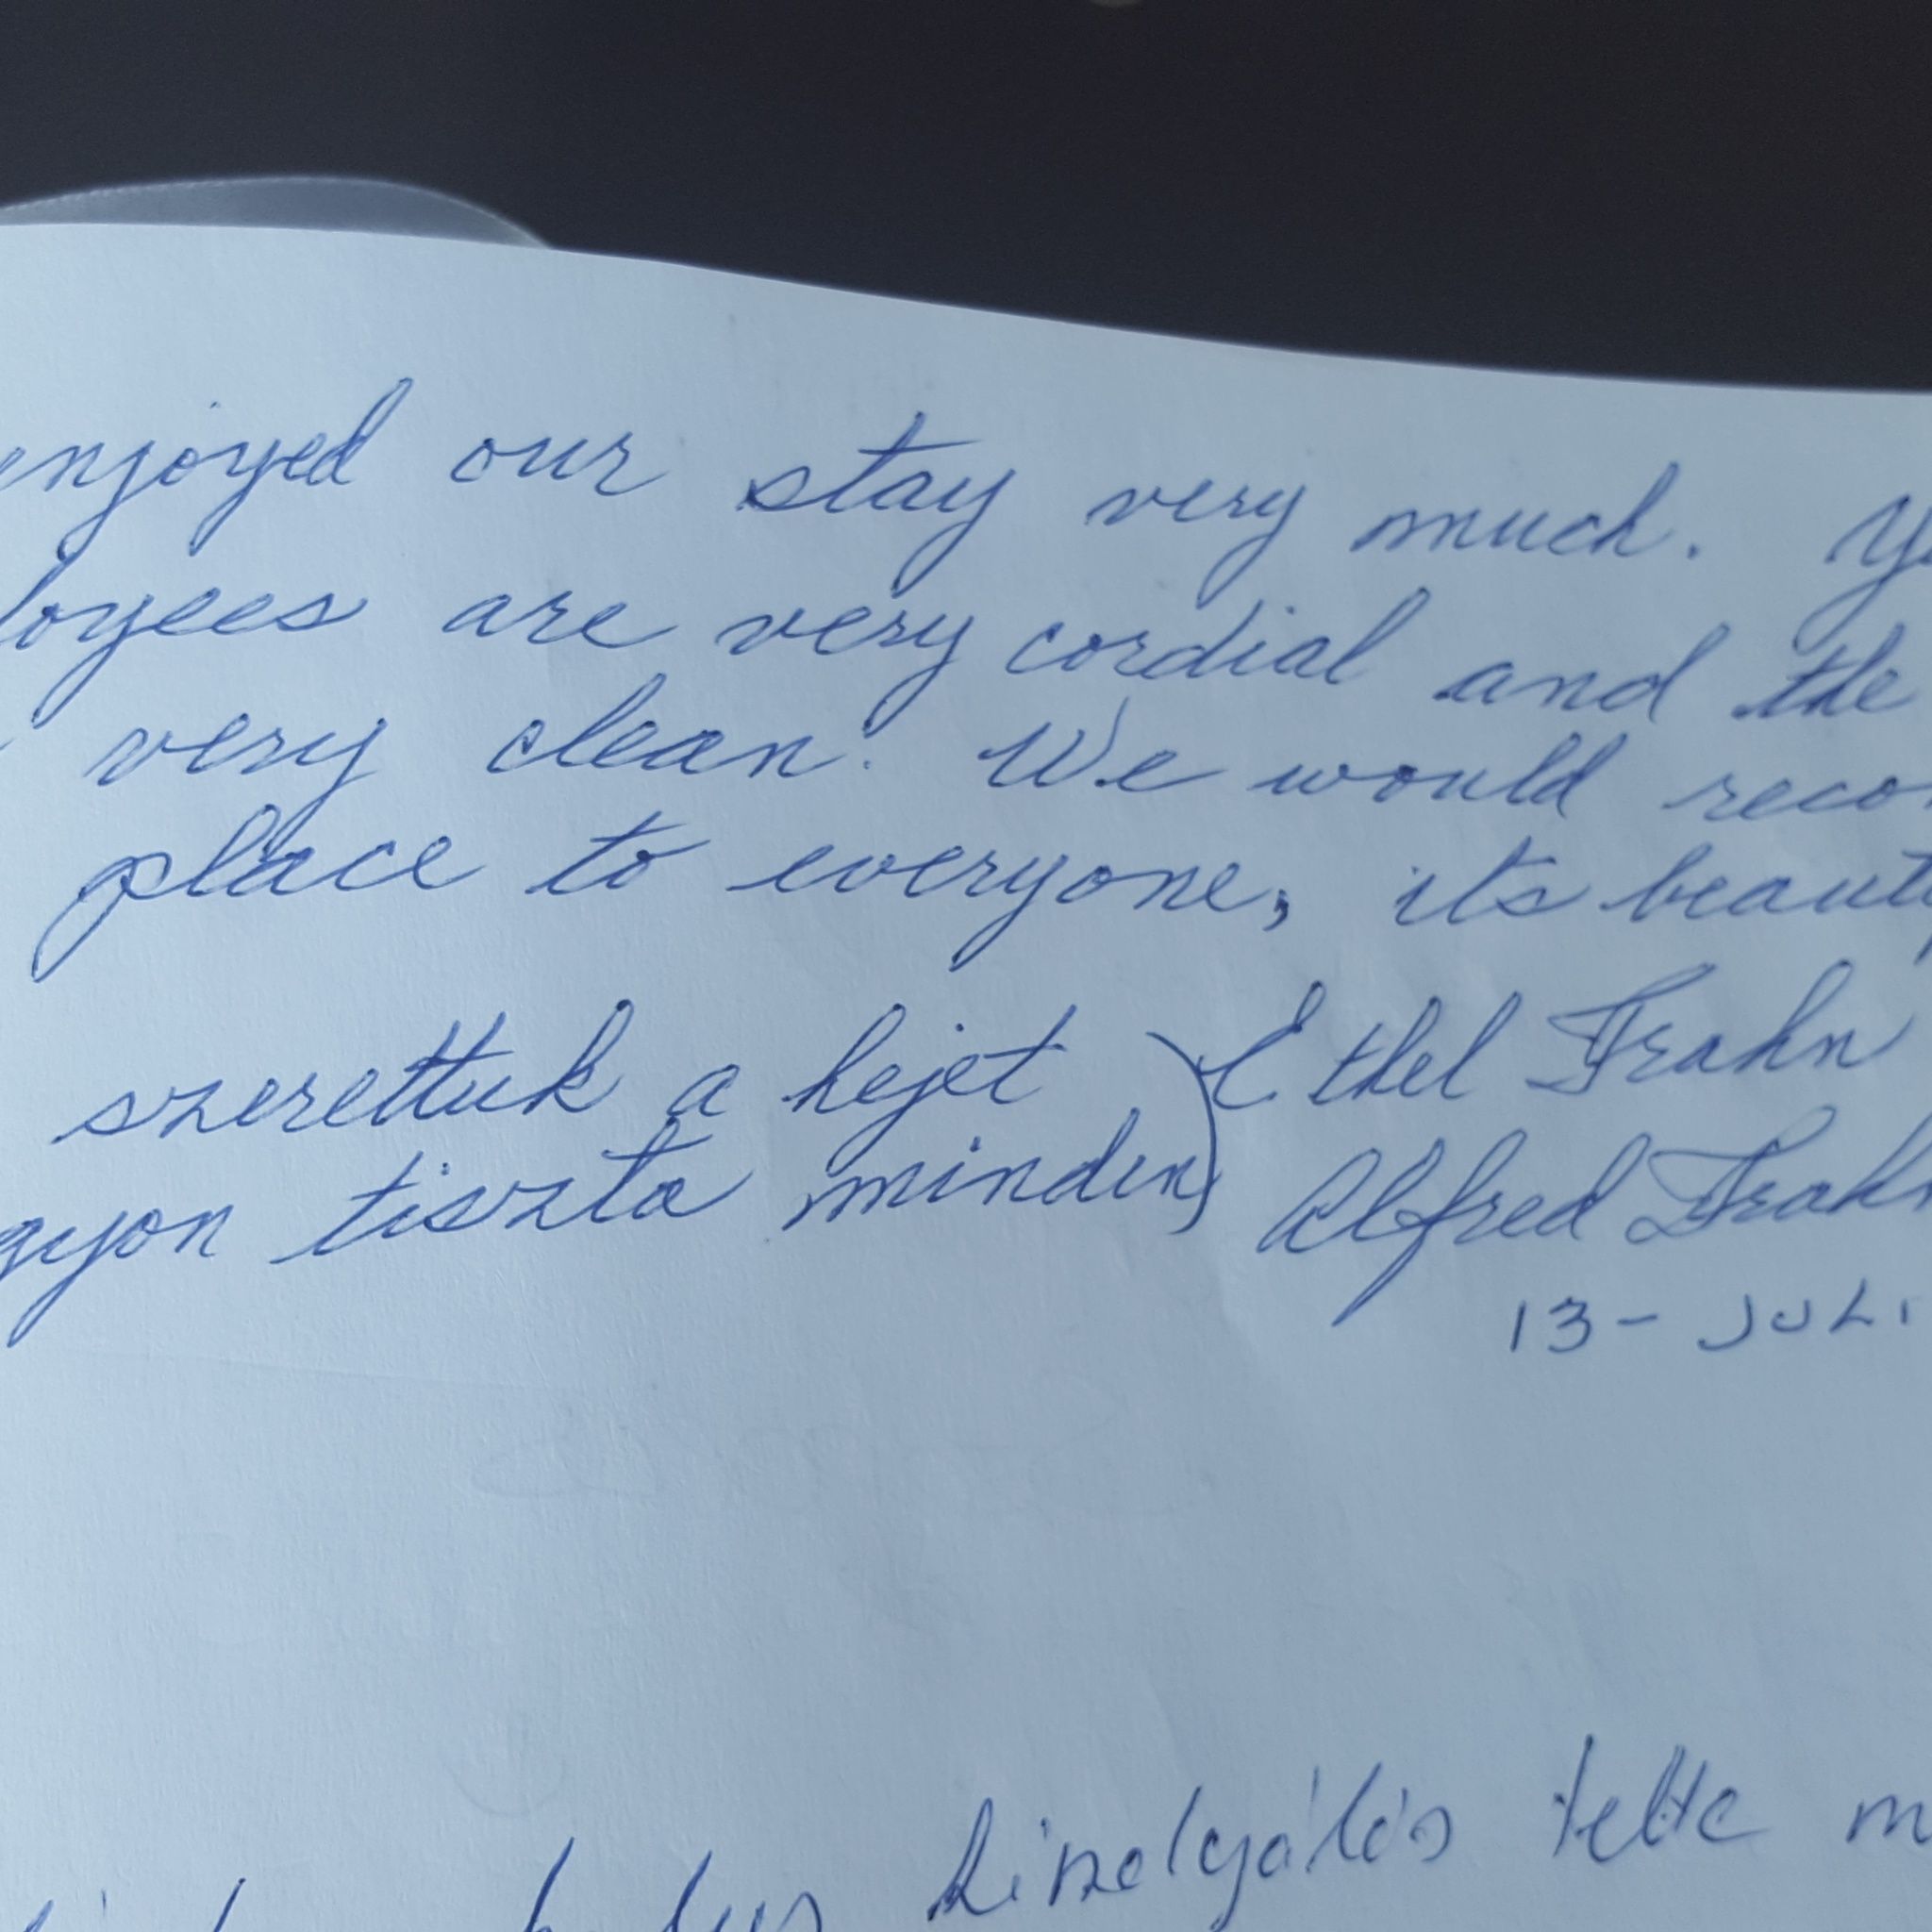 enjoyed our stay very much. Yo
loyees are very cordial and the
very clean. We would recom
place to everyone, its beauti
szerettuk a hejet) Ethel Frahn
gyon tiszta minden) Alfred Frahn
13- JULI
kiszolgálás tette m